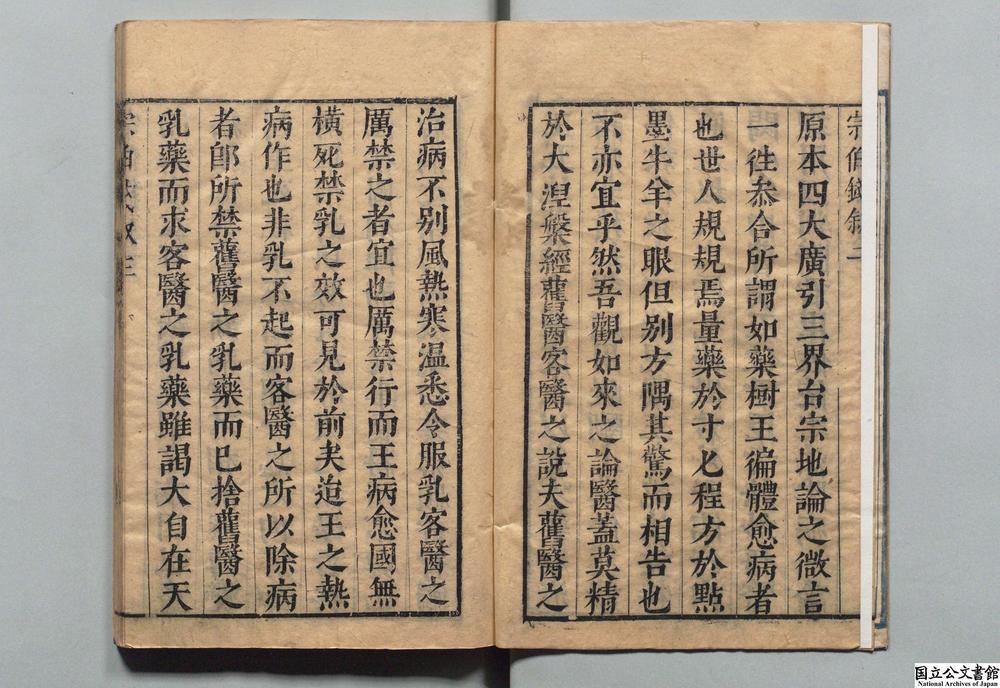 原本四大廣引三界台宗地論之微言
一徃叅合所謂如藥樹王徧體愈病者
也世人規規焉量藥於寸匕程方於㸃
墨牛羊之眼但别方隅其驚而相告也
不亦宜乎然吾觀如來之論醫蓋莫精
於大湼槃經舊醫客醫之說夫舊醫之
治病不别風熱寒温悉令服乳客醫之
厲禁之者宜也厲禁行而王病愈國無
橫死禁乳之效可見於前矣迨王之熱
病作也非乳不起而客醫之所以除病
者卽所禁舊醫之乳藥而已捨舊醫之
乳藥而求客醫之乳藥雖謁大自在天
国立公文書館
National Archives of Japan